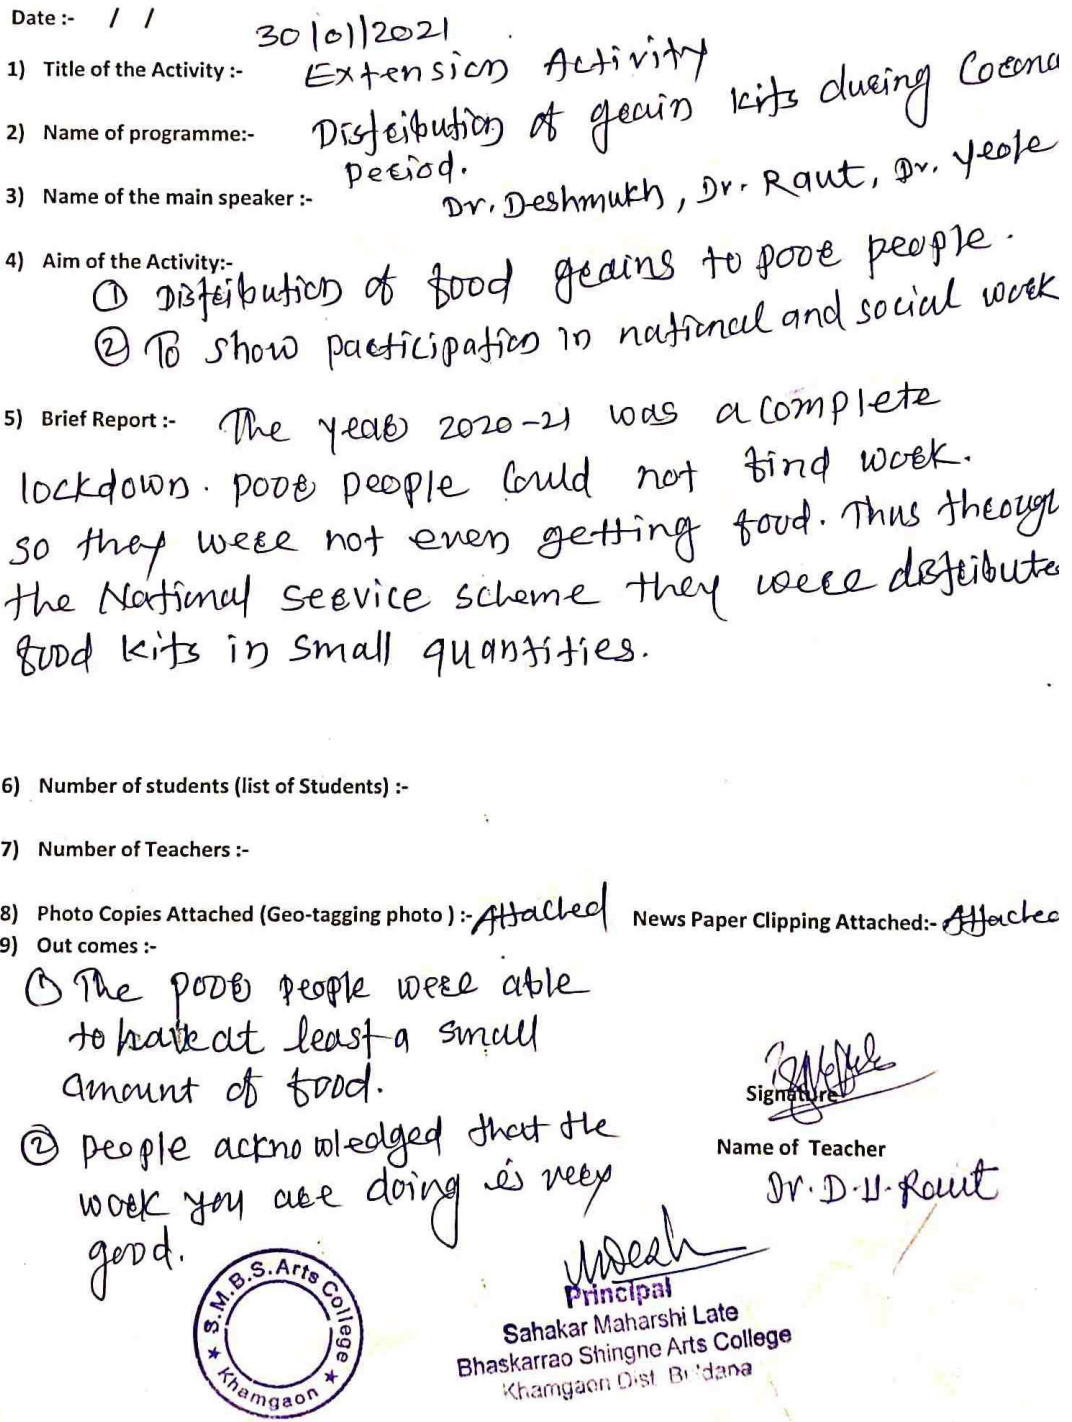 Date :- / /
30/01/2021
1) Title of the Activity :- Extension Activity
2) Name of programme:- Distribution of grain kits during Corona
period.
3) Name of the main speaker :- Dr. Deshmukh, Dr. Raut, Dr. Yeole
4) Aim of the Activity:-
① Distribution of food grains to poor people.
② To show participation in national and social work
5) Brief Report :- The year 2020-21 was a complete
lockdown. poor people could not find work.
so they were not even getting food. Thus throug
the National service scheme they were distribute
food kits in small quantities.
6) Number of students (list of Students) :-
7) Number of Teachers :-
8) Photo Copies Attached (Geo-tagging photo ) :- Attached News Paper Clipping Attached:- Attached
9) Out comes :-
① The poor people were able
to have at least a small
amount of food.
② people acknowledged that the
work you are doing is very
good.
Signature
Name of Teacher
Dr. D. U. Raut
S.M.B.S. Arts College
Khamgaon
Principal
Sahakar Maharshi Late
Bhaskarrao Shingne Arts College
Khamgaon Dist